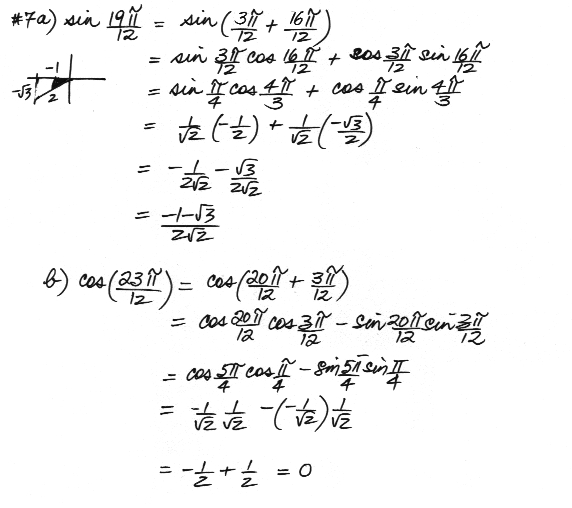 #7a) sin 19π/12 = sin(3π/12 + 16π/12)
= sin 3π/12 cos 16π/12 + cos 3π/12 sin 16π/12
= sin π/4 cos 4π/3 + cos π/4 sin 4π/3
-1
-√3
2
= 1/√2 (-1/2) + 1/√2 (-√3/2)
= -1/2√2 - √3/2√2
= -1-√3/2√2
b) cos(23π/12) = cos(20π/12 + 3π/12)
= cos 20π/12 cos 3π/12 - sin 20π/12 sin 3π/12
= cos 5π/4 cos π/4 - sin 5π/4 sin π/4
= -1/√2 1/√2 - (-1/√2) 1/√2
= -1/2 + 1/2 = 0